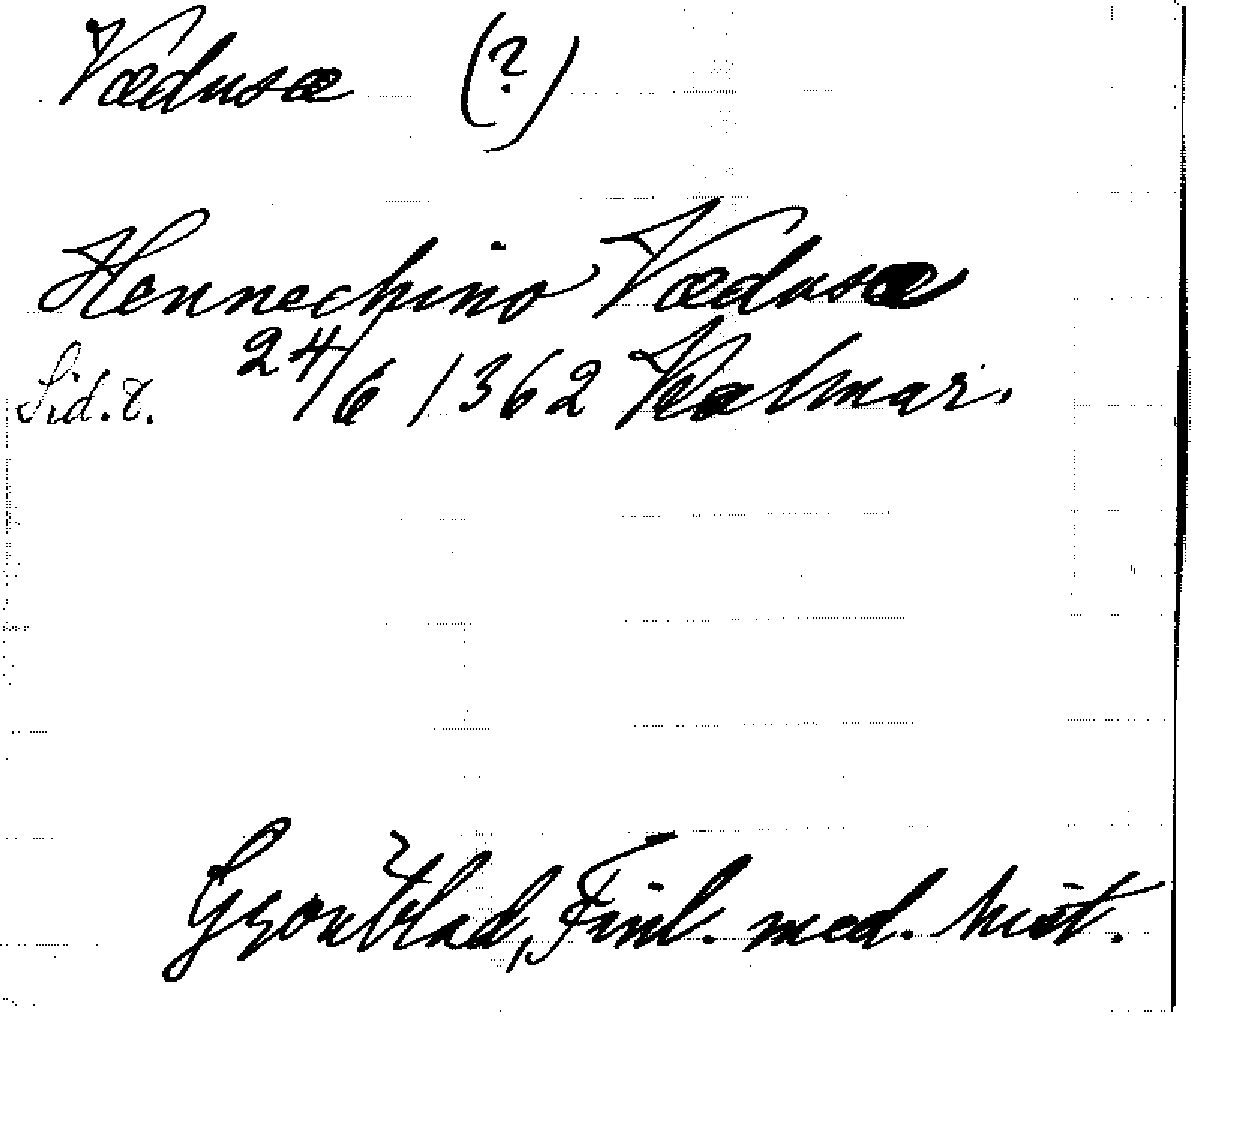 Vædusæ (?)
Hennechino Vædusæ
Sid. v. 24/6 1362 Kalmar.
Grönblad, Finl. med. hist.